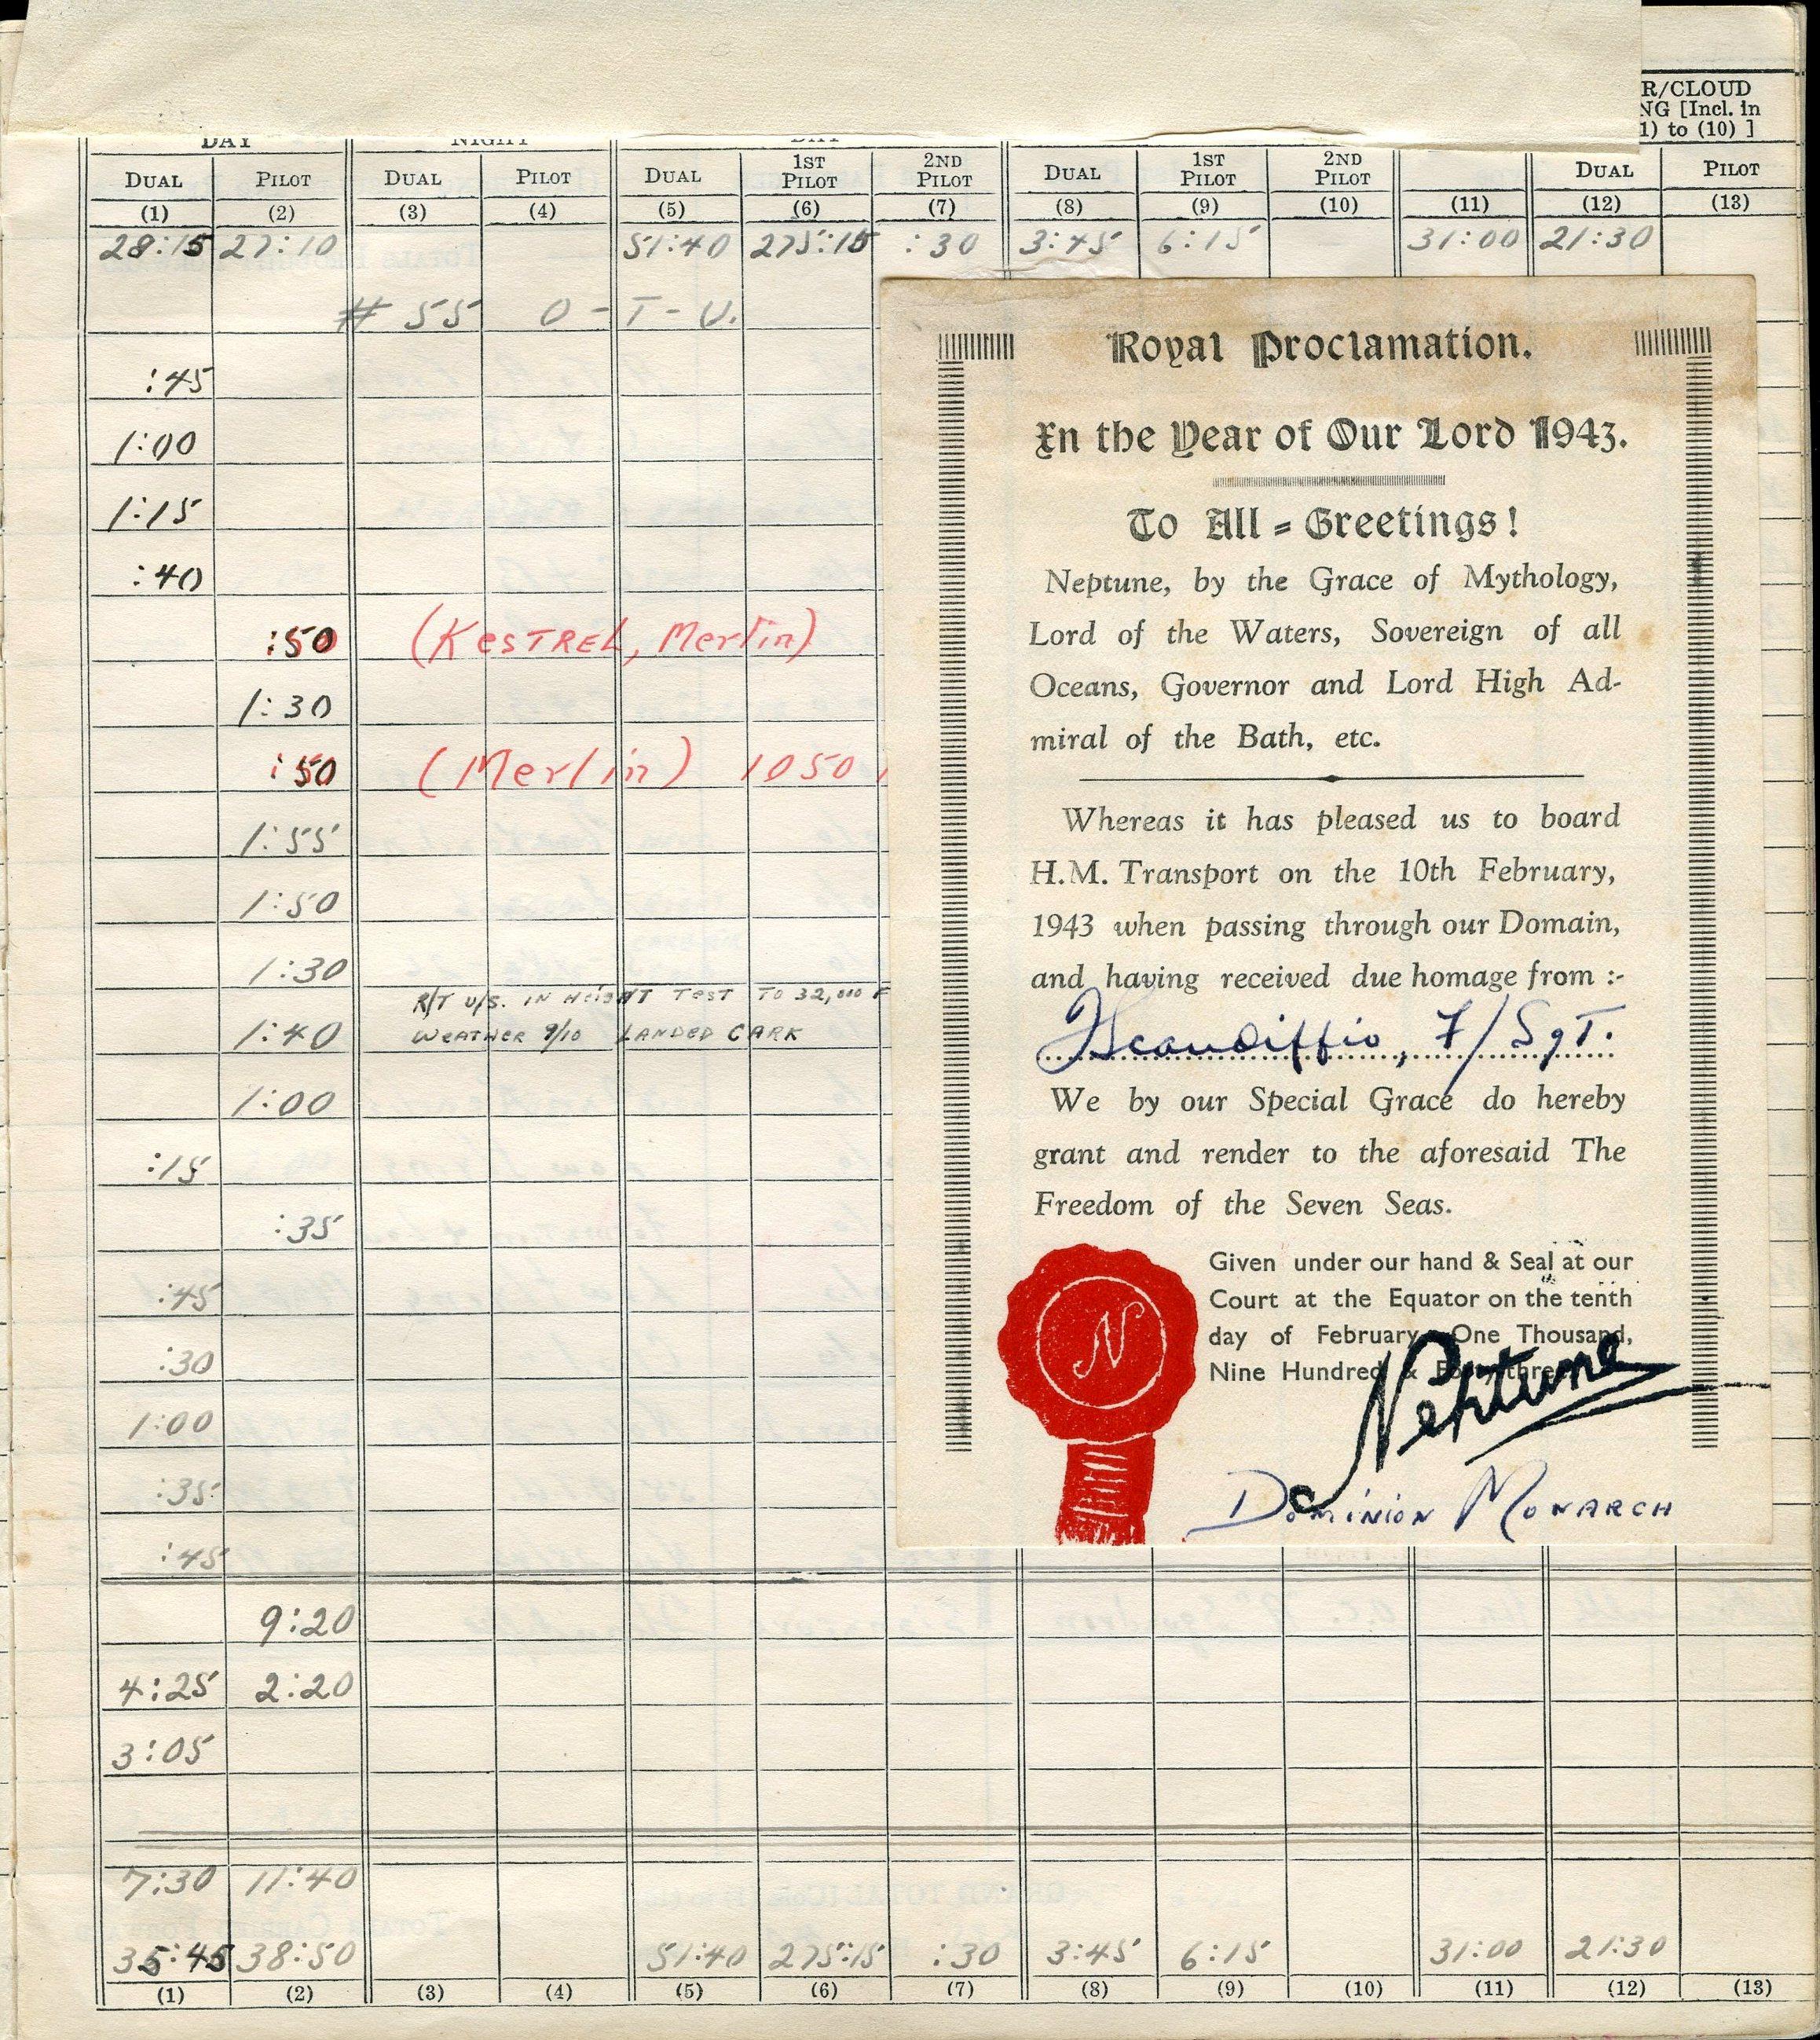 R/CLOUD
NG [Incl. in
1) to (10) ]
DAY NIGHT DAY
DUAL PILOT DUAL PILOT DUAL 1ST PILOT 2ND PILOT DUAL 1ST PILOT 2ND PILOT DUAL PILOT
(1) (2) (3) (4) (5) (6) (7) (8) (9) (10) (11) (12) (13)
28:15 27:10 51:40 275:15 :30 3:45 6:15 31:00 21:30
# 55 O-T-U.
:45
1:00
1:15
:40
:50 (KESTREL, Merlin)
1:30
:50 (Merlin) 1050
1:55
1:50
1:30
R/T U/S. IN HEIGHT TEST TO 32,000 F
1:40 WEATHER 9/10 LANDED CARK
1:00
:15
:35
:45
:30
1:00
:35
:45
9:20
4:25 2:20
3:05
7:30 11:40
35:45 38:50 51:40 275:15 :30 3:45 6:15 31:00 21:30
(1) (2) (3) (4) (5) (6) (7) (8) (9) (10) (11) (12) (13)
Royal Proclamation.
In the Year of Our Lord 1943.
To All = Greetings!
Neptune, by the Grace of Mythology,
Lord of the Waters, Sovereign of all
Oceans, Governor and Lord High Ad-
miral of the Bath, etc.
Whereas it has pleased us to board
H.M. Transport on the 10th February,
1943 when passing through our Domain,
and having received due homage from :-
Scandiffio, F/Sgt.
We by our Special Grace do hereby
grant and render to the aforesaid The
Freedom of the Seven Seas.
Given under our hand & Seal at our
Court at the Equator on the tenth
day of February, One Thousand,
Nine Hundred & Forty three
N
Neptune
DOMINION MONARCH